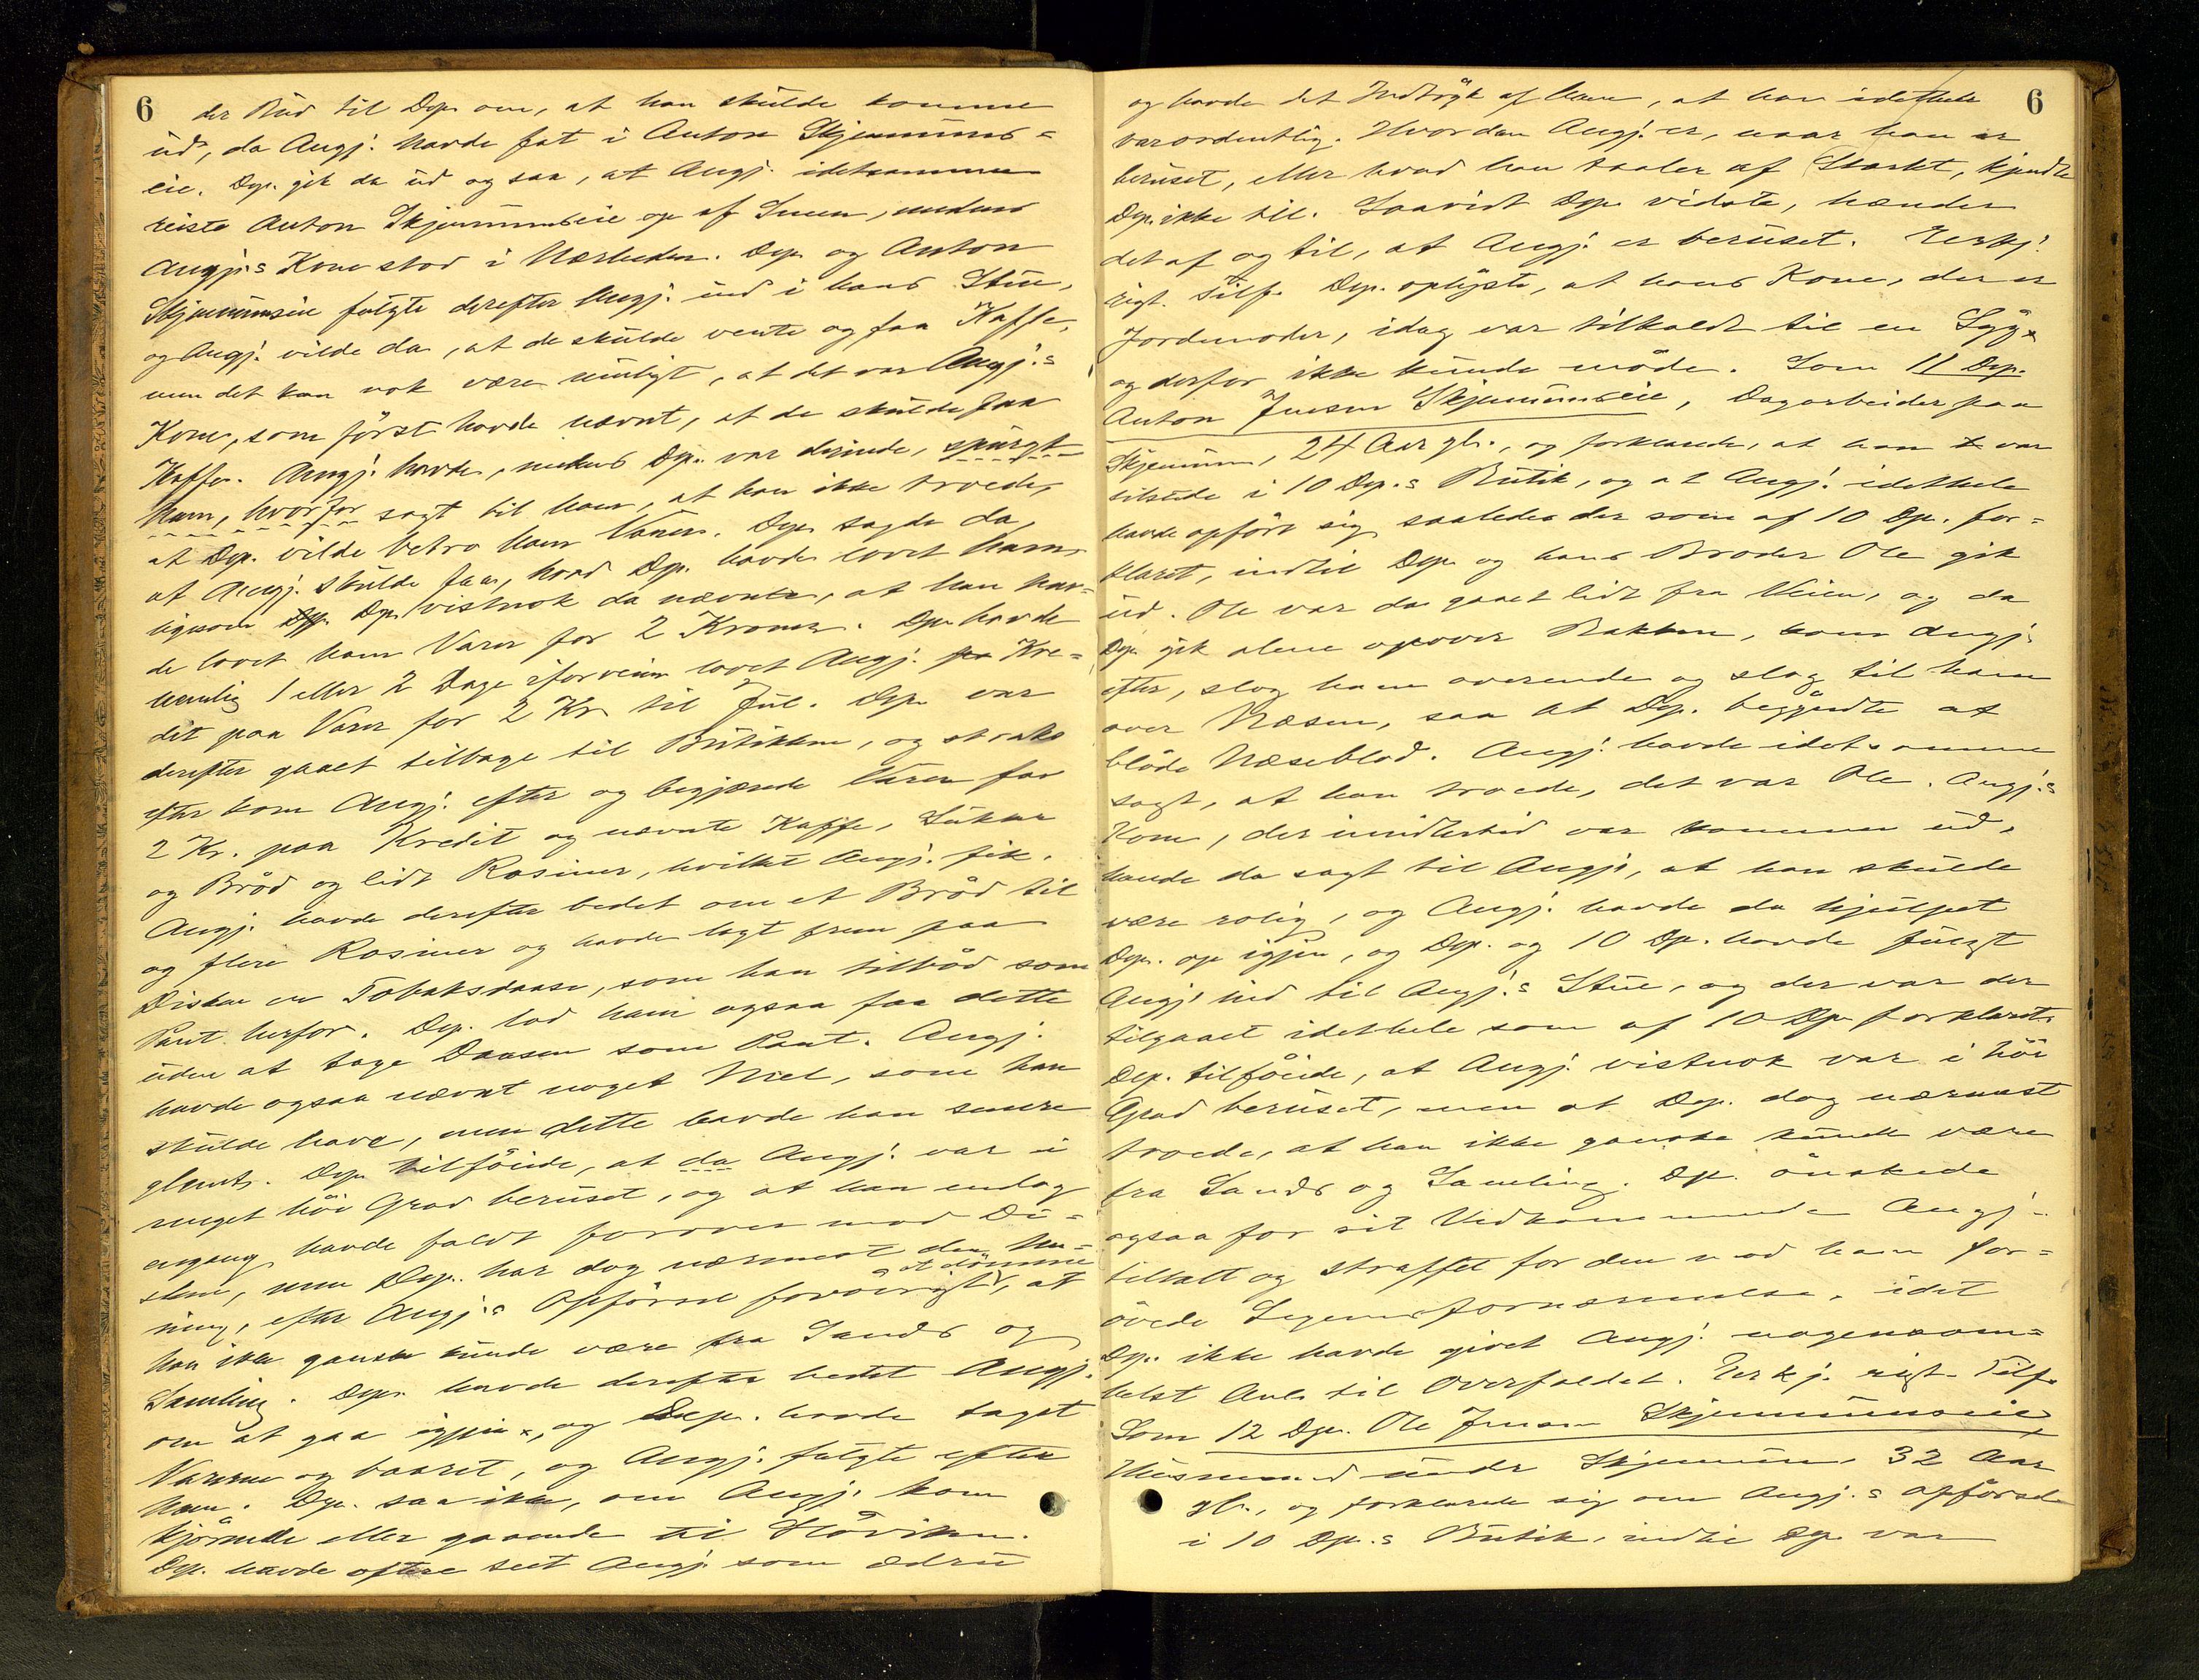 6
der Bud til Dep. om, at han skulde komme
ud, da Angj. havde fat i Anton Skjennums-
eie. Dep. gik da ud og saa, at Angj. idetsamme
reiste Anton Skjennumseie op af Sneen, medens
Angj.s Kone stod i Nærheden. Dep. og Anton
Skjennumseie fulgte derefter Angj. ind i hans Stue,
og Angj. vilde da, at de skulde vente og faa Kaffe,
men det kan nok være muligt, at det var Angj.s
Kone, som först havde nævnt, at de skulde faa
Kaffe. Angj. havde, medens Dep. var derinde, spurgt
ham, hvorfor sagt til ham, at han ikke troede,
at Dep. vilde betro ham Varer. Dep. sagde da,
at Angj. skulde faa, hvad Dep. havde lovet ham
ligesom Dep. Dep. vistnok da nævnte, at han hav-
de lovet ham Varer for 2 Kroner. Dep. havde
nemlig 1 eller 2 Dage iforveien lovet Angj. pa Kre-
dit paa Varer for 2 Kr. til Jul. Dep. var
derefter gaaet tilbage til Butikken, og straks
efter kom Angj. efter og begjærede Varer for
2 Kr. paa Kredit og nævnte Kaffe, Sukker
og Bröd og lidt Rosiner, hvilket Angj. fik.
Angj. havde derefter bedet om et Bröd til
og flere Rosiner og havde lagt frem paa
Disken en Tobaksdaase, som han tilböd som
Pant herfor. Dep. lod ham ogsaa faa dette
uden at tage Daasen som Pant. Angj.
havde ogsaa nævnt noget Mel, som han
skulde have, men dette havde han senere
glemt. Dep. tilföiede, at da Angj. var i
meget höi Grad beruset, og at han endog
engang havde faldt forover mod Di-
sken, men Dep. har dog nærmest den Me-
ning, efter Angj.s Opförsel foroverigt at dömme, at
han ikke ganske kunde være fra Sands og
Samling. Dep. havde derefter bedet Angj.
om at gaa igjen, og Dep. havde taget
Varerne og baaret, og Angj. fulgte efter
ham. Dep. saa ikke, om Angj. kom
kjörende eller gaaende til
Dep. havde oftere seet Angj. som ædru
6
og havde det Indtryk af ham, at han idethele
var ordentlig. Hvordan Angj. er, naar han er
beruset, eller hvad han taaler af Stærkt, kjendte
Dep. ikke til. Saavidt Dep. vidste, hænder
det af og til, at Angj. er beruset. Erkj.
rigt. Tilf. Dep. oplyste, at hans Kone, der er
Jordemoder, idag var tilkaldt til en Syg
og derfor ikke kunde möde. Som 11 Dep.
Anton Jensen Skjennumseie, Dagarbeider paa
Skjennum, 24 Aar gl., og forklarede, at han var
tilstede i 10 Dep.s Butik, og at Angj. idethele
havde opfört sig saaledes der som af 10 Dep. for-
klaret, indtil Dep. og hans Broder Ole gik
ud. Ole var da gaaet lidt fra Veien, og da
Dep. gik alene opover Bakken, kom Angj.
efter, slog ham overende og slog til ham
over Næsen, saa at Dep. begyndte at
blöde Næseblod. Angj. havde idetsamme
sagt, at han troede, det var Ole. Angj.s
Kone, der imidlertid var kommen ud,
havde da sagt til Angj., at han skulde
være rolig, og Angj. havde da hjulpet
Dep. op igjen, og Dep. og 10 Dep. havde fulgt
Angj. ind til Angj.s Stue, og der var der
tilgaaet idethele som af 10 Dep. forklaret.
Dep. tilföiede, at Angj. vistnok var i höi
Grad beruset, men at Dep. dog nærmest
troede, at han ikke ganske kunde være
fra Sands og Samling. Dep. önskede
ogsaa for sit Vedkommende Angj.
tiltalt og straffet for den mod ham for-
övede Legemsfornærmelse, idet
Dep. ikke havde givet Angj. nogensom-
helst Anl. til Overfaldet. Erkj. rigt. Tilf.
Som 12 Dep. Ole Jensen Skjennumseie,
Husmand under Skjennum, 32 Aar
gl., og forklarede sig om Angj.s Opförsel
i 10 Dep.s Butik, indtil Dep. var